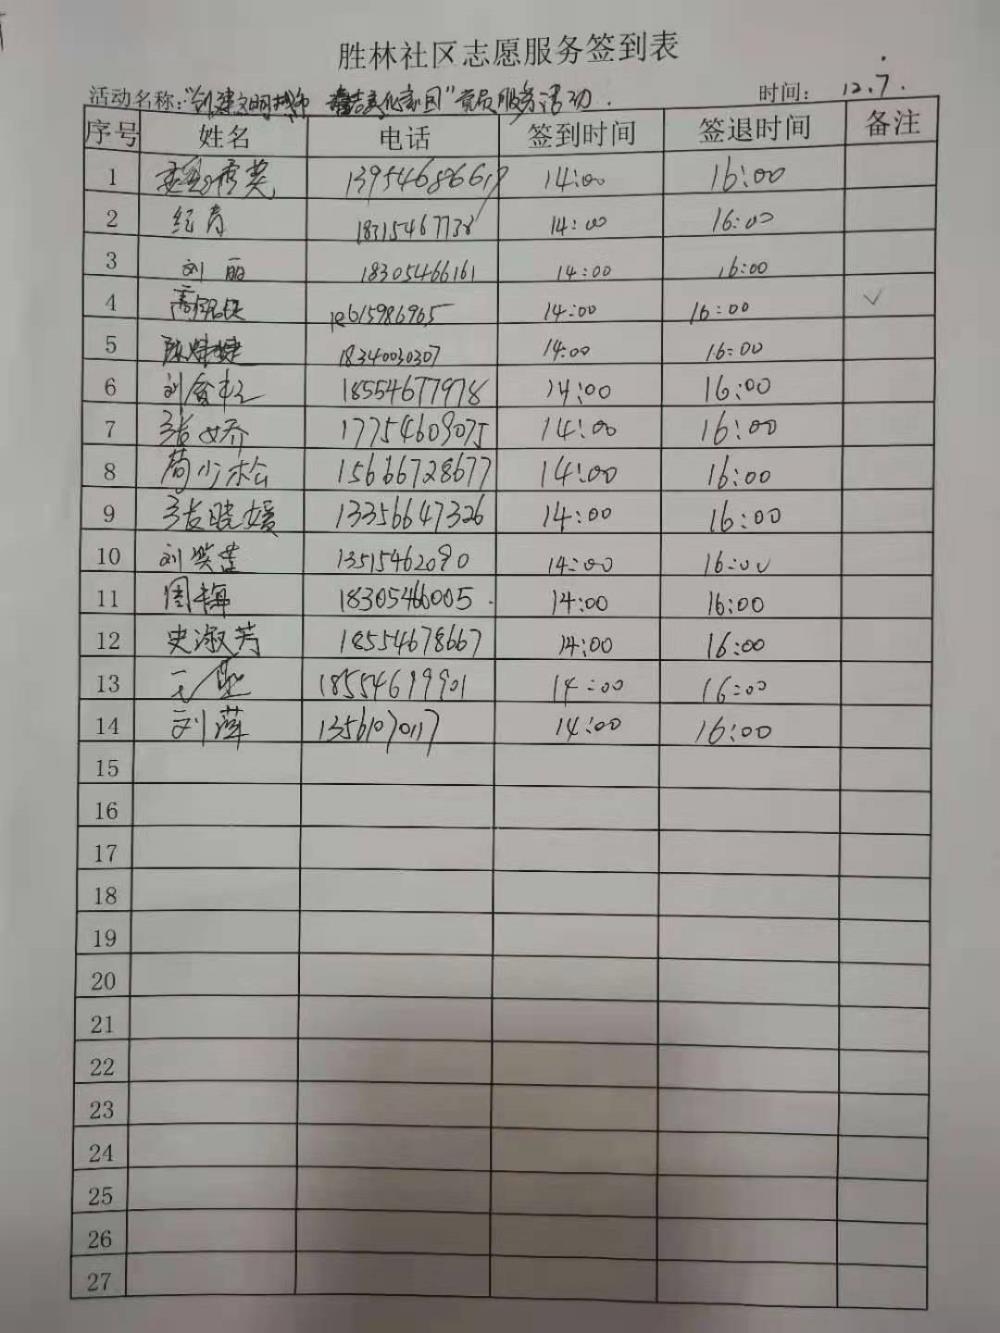 胜林社区志愿服务签到表
活动名称:"创建文明城市 美化家园"党员服务活动. 时间: 12.7.
序号 姓名 电话 签到时间 签退时间 备注
1 秀英 13954686617 14:00 16:00
2 纪青 18315467738 14:00 16:00
3 刘丽 18305466161 14:00 16:00
4 615986965 14:00 16:00 ✓
5 18340030307 14:00 16:00
6 刘 18554677978 14:00 16:00
7 张娇 17754609075 14:00 16:00
8 荀少松 15666728677 14:00 16:00
9 张晓媛 13356647326 14:00 16:00
10 刘笑莲 13515462090 14:00 16:00
11 周梅 18305466005. 14:00 16:00
12 史淑芳 18554678667 14:00 16:00
13 18554699901 14:00 16:00
14 刘萍 13561070117 14:00 16:00
15
16
17
18
19
20
21
22
23
24
25
26
27